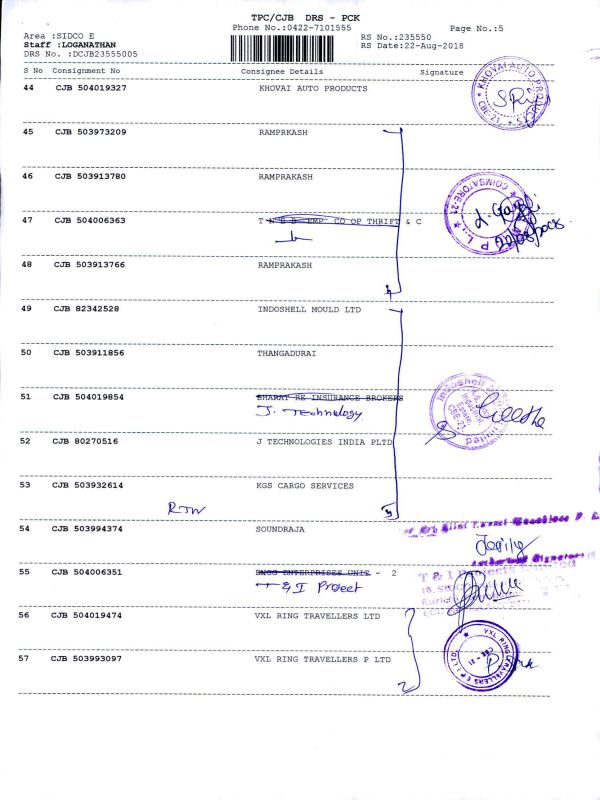 TPC/CJB DRS - PCK
Phone No.:0422-7101555
Page No.:5
Area :SIDCO E
RS No.:235550
Staff :LOGANATHAN
RS Date:22-Aug-2018
DRS No. :DCJB23555005
S No Consignment No Consignee Details Signature
44 CJB 504019327 KHOVAI AUTO PRODUCTS
KHOVAI AUTO PRODUCTS
CBE-21
45 CJB 503973209 RAMPRKASH
46 CJB 503913780 RAMPRAKASH
COIMBATORE-21
47 CJB 504006363 T N E B EMP CO OP THRIFT & C
48 CJB 503913766 RAMPRAKASH
49 CJB 82342528 INDOSHELL MOULD LTD
50 CJB 503911856 THANGADURAI
51 CJB 504019854 BHARAT RE INSURANCE BROKERS
J. Technology
Indoshell Mould Limited
52 CJB 80270516 J TECHNOLOGIES INDIA PLTD
53 CJB 503932614 KGS CARGO SERVICES
54 CJB 503994374 SOUNDRAJA
55 CJB 504006351 ENTERPRISES UNIT - 2
T & I Project
T & I Projects Limited
56 CJB 504019474 VXL RING TRAVELLERS LTD
57 CJB 503993097 VXL RING TRAVELLERS P LTD
VXL RING TRAVELLERS (P) LTD
CBE - 21